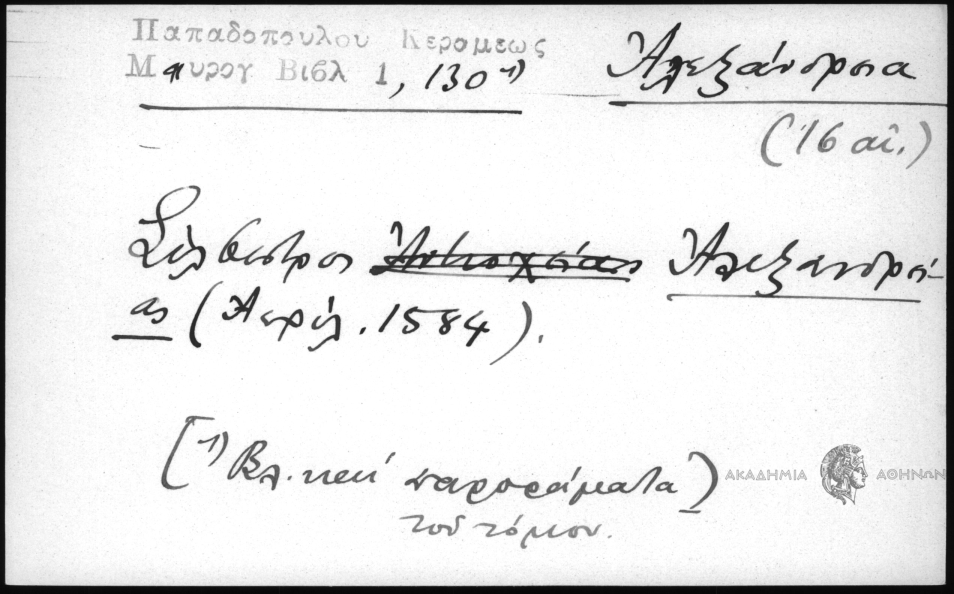 Παπαδοπουλου Κεραμεως
Μαυρογ Βιβλ 1, 130 ¹)
Ἀλεξάνδρεια
(16 αἰ.)
Σίλβεστρος Ἀντιοχείας Ἀλεξανδρεί-
ας (Ἀπρίλ. 1584).
[¹) Βλ. καί παροράματα]
τοῦ τόμου.
ΑΚΑΔΗΜΙΑ ΑΘΗΝΩΝ